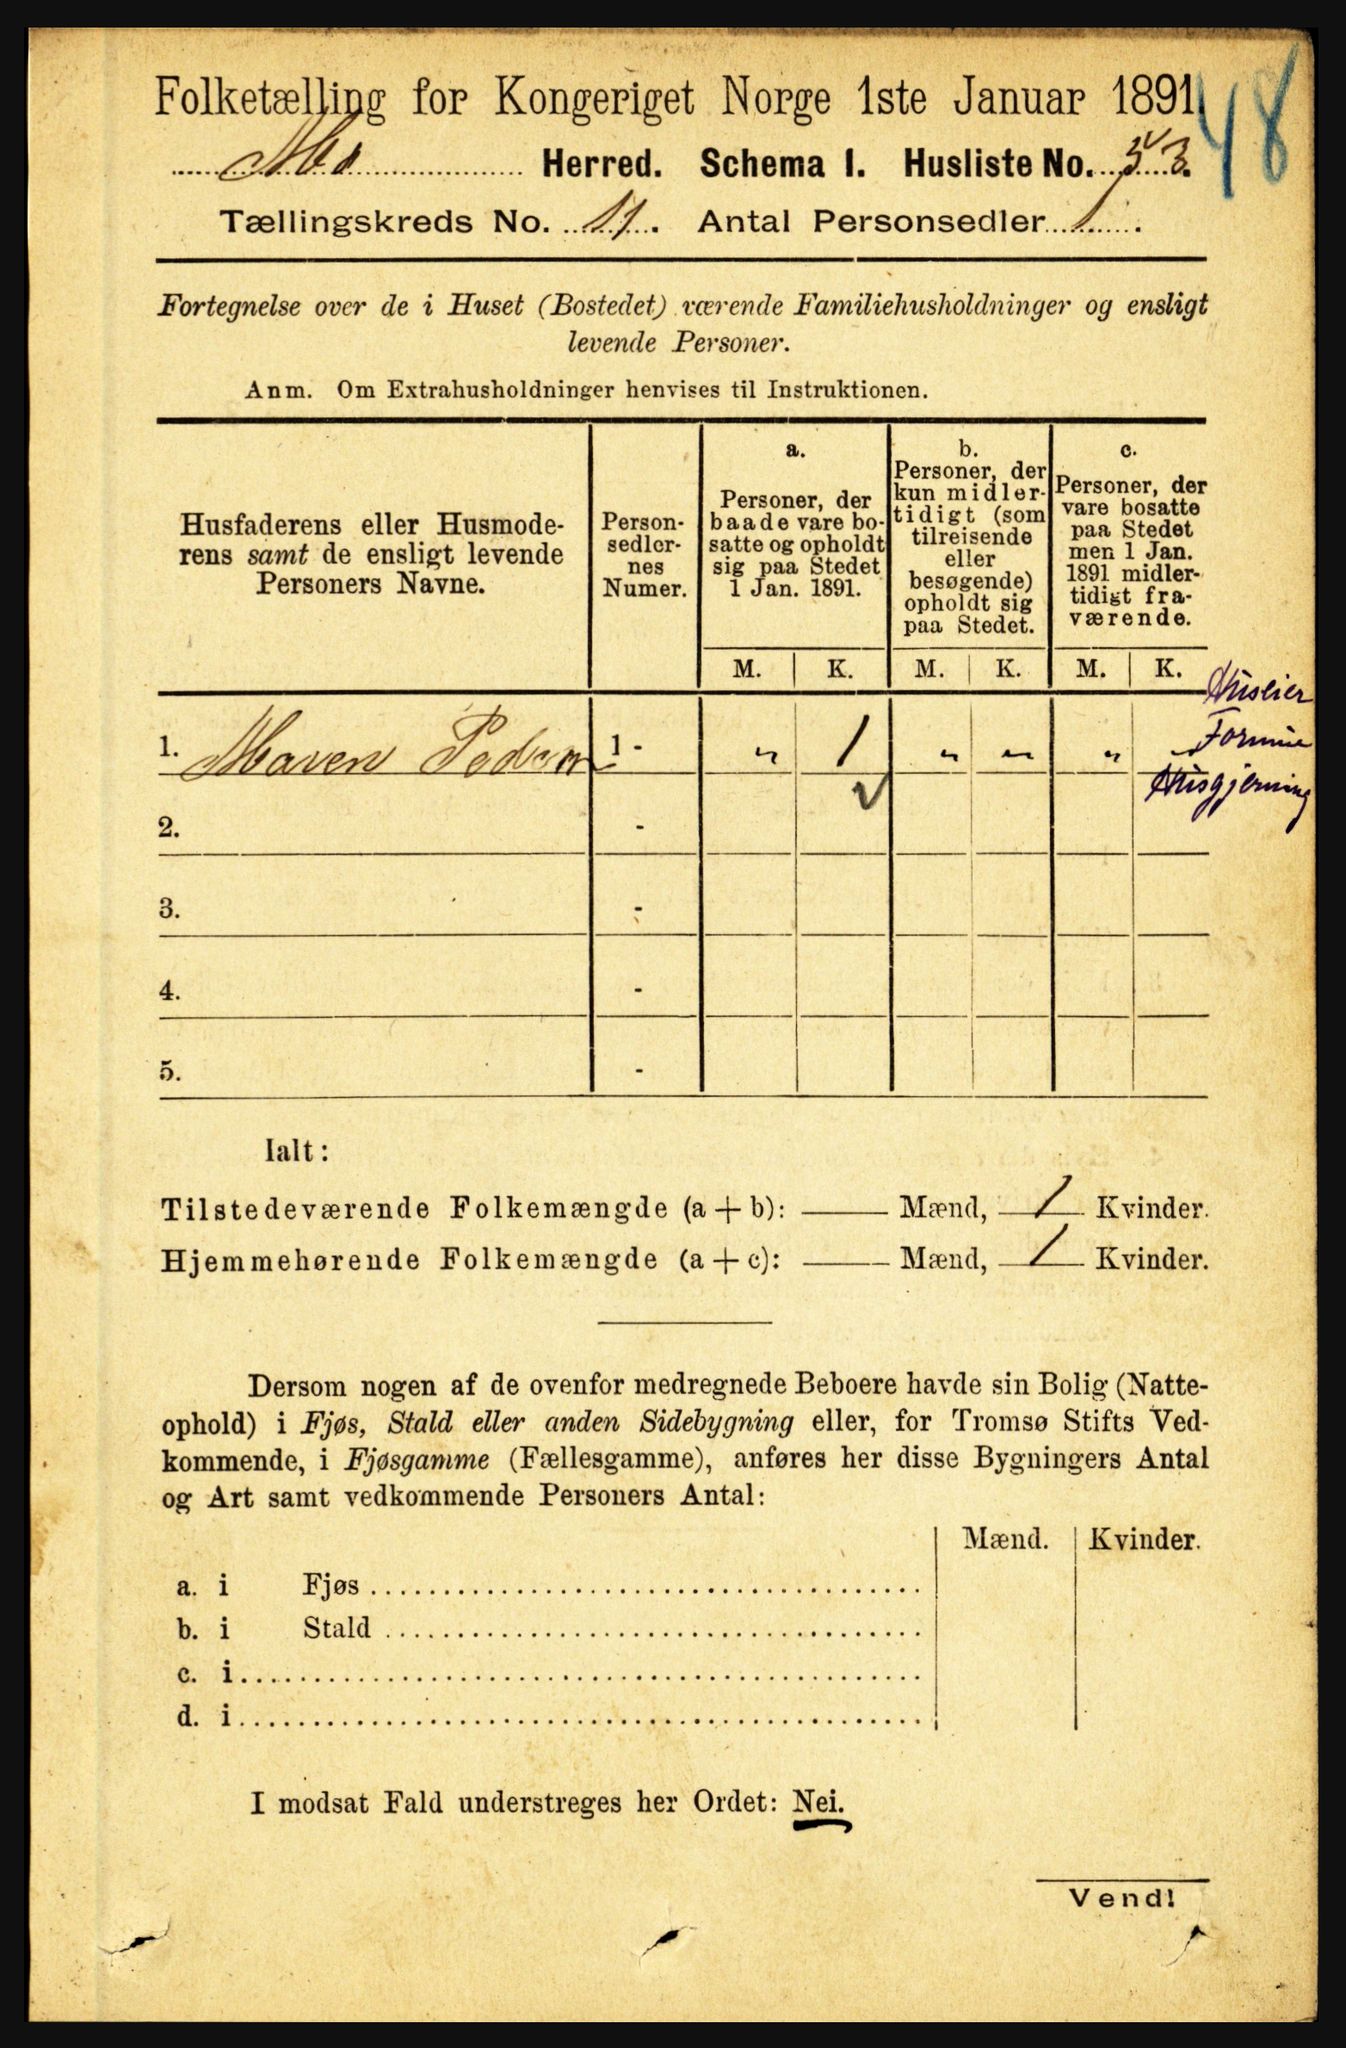 Folketælling for Kongeriget Norge 1ste Januar 1891.
48
Mo Herred. Schema I. Husliste No. 53.
Tællingskreds No. 11. Antal Personsedler 1.
Fortegnelse over de i Huset (Bostedet) værende Familiehusholdninger og ensligt
levende Personer.
Anm. Om Extrahusholdninger henvises til Instruktionen.
Husfaderens eller Husmode-
rens samt de ensligt levende
Personers Navne.
Person-
sedler-
nes
Numer.
a.
Personer, der
baade vare bo-
satte og opholdt
sig paa Stedet
1 Jan. 1891.
b.
Personer, der
kun midler-
tidigt (som
tilreisende
eller
besøgende)
opholdt sig
paa Stedet.
c.
Personer, der
vare bosatte
paa Stedet
men 1 Jan.
1891 midler-
tidigt fra-
værende.
M. K. M. K. M. K.
Huseier
Formue
Husgjerning
1. Maren 1 - „ 1 „ „ „
2. -
3. -
4. -
5. -
Ialt:
Tilstedeværende Folkemængde (a + b): Mænd, 1 Kvinder.
Hjemmehørende Folkemængde (a + c): Mænd, 1 Kvinder.
Dersom nogen af de ovenfor medregnede Beboere havde sin Bolig (Natte-
ophold) i Fjøs, Stald eller anden Sidebygning eller, for Tromsø Stifts Ved-
kommende, i Fjøsgamme (Fællesgamme), anføres her disse Bygningers Antal
og Art samt vedkommende Personers Antal:
Mænd. Kvinder.
a. i Fjøs
b. i Stald
c. i
d. i
I modsat Fald understreges her Ordet: Nei.
Vend!